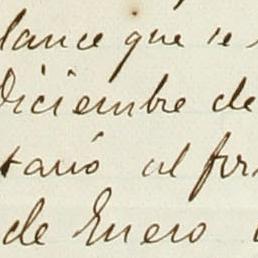 lance que se
Diciembre de
tarió al fir
de Enero